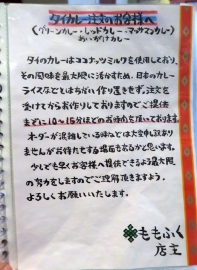 タイカレー注文のお客様へ
(グリーンカレー・レッドカレー・マッサマンカレー)
あいがけカレー
タイのカレーはココナッツミルクを使用しており、
その風味を最大限に活かすため、日本のカレー
ライスなどとはちがい作り置きせず、注文を
受けてからお作りしておりますのでご提供
までに10〜15分ほどのお時間を頂いております。
オーダーが混雑している時などは大変申し訳あり
ませんがお待たせする場合もあるかと思います。
少しでも早くお客様へ提供できるよう最大限
の努力をしますのでご理解頂きますよう
よろしくお願いいたします。
ももふく
店主